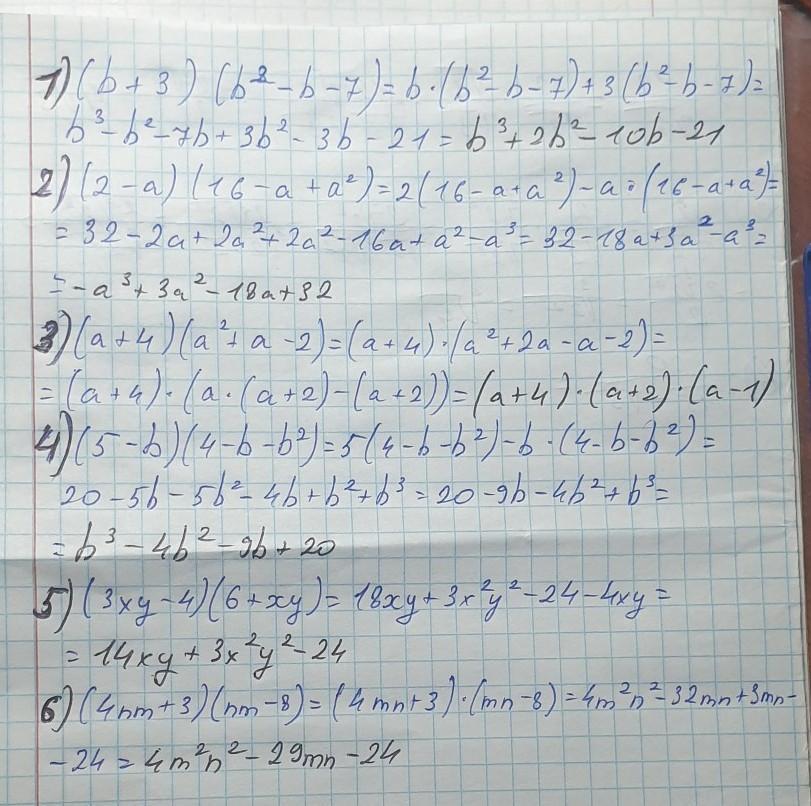 1) (b + 3) (b² - b - 7) = b · (b² - b - 7) + 3 (b² - b - 7) =
b³ - b² - 7b + 3b² - 3b - 21 = b³ + 2b² - 10b - 21
2) (2 - a) (16 - a + a²) = 2 (16 - a + a²) - a · (16 - a + a²) =
= 32 - 2a + 2a² + 2a² - 16a + a² - a³ = 32 - 18a + 3a² - a³ =
= - a³ + 3a² - 18a + 32
3) (a + 4) (a² + a - 2) = (a + 4) · (a² + 2a - a - 2) =
= (a + 4) · (a · (a + 2) - (a + 2)) = (a + 4) · (a + 2) · (a - 1)
4) (5 - b) (4 - b - b²) = 5 (4 - b - b²) - b · (4 - b - b²) =
20 - 5b - 5b² - 4b + b² + b³ = 20 - 9b - 4b² + b³ =
= b³ - 4b² - 9b + 20
5) (3xy - 4) (6 + xy) = 18xy + 3x²y² - 24 - 4xy =
= 14xy + 3x²y² - 24
6) (4nm + 3) (nm - 8) = (4mn + 3) · (mn - 8) = 4m²n² - 32mn + 3mn -
- 24 = 4m²n² - 29mn - 24